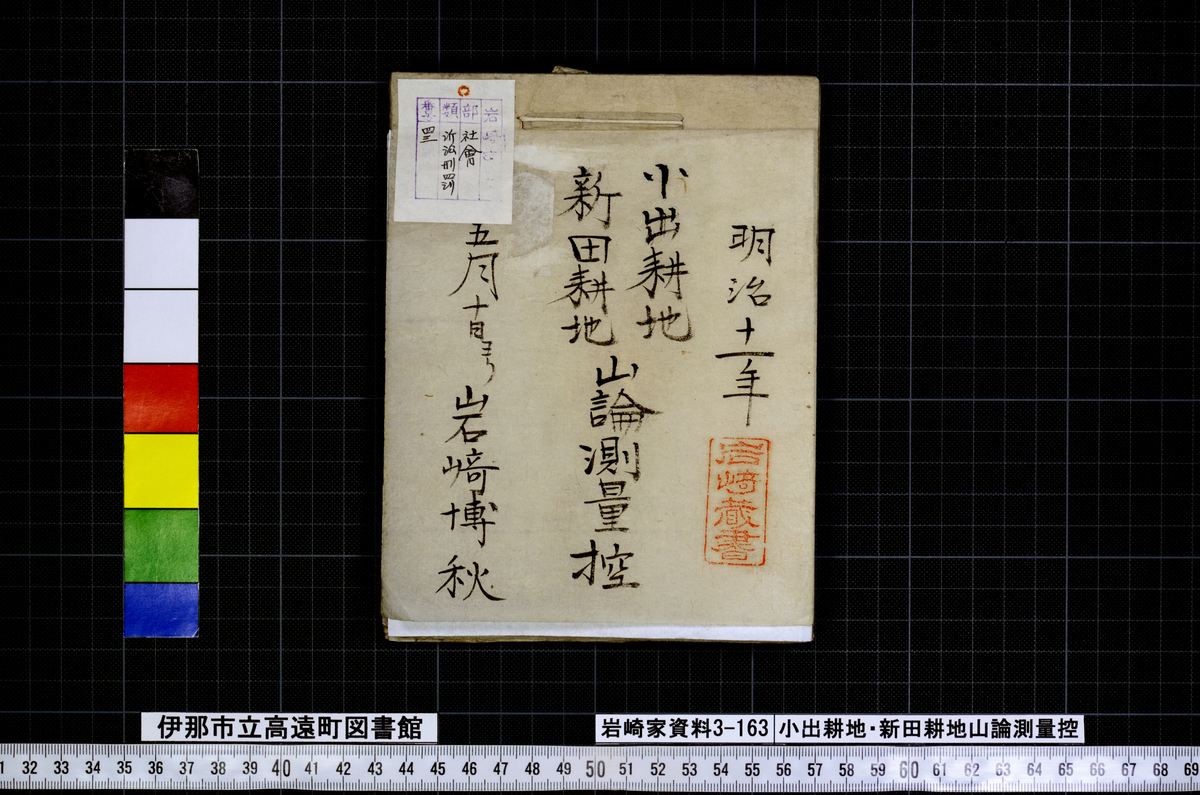 明治十一年
岩﨑蔵書
小出耕地
新田耕地
山論測量控
五月十日ヨリ
岩﨑博秋
部 社會
類
伊那市立高遠町図書館
岩崎家資料3-163
小出耕地・新田耕地山論測量控
1 32 33 34 35 36 37 38 39 40 41 42 43 44 45 46 47 48 49 50 51 52 53 54 55 56 57 58 59 60 61 62 63 64 65 66 67 68 69